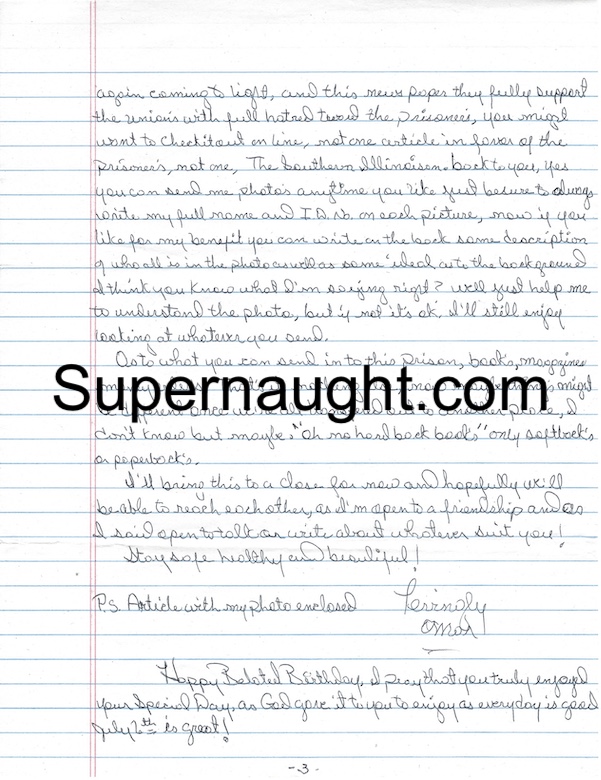 again coming to light, and this news paper they fully support
the unions with full hatred toward the prisoner's, you might
want to check it out on line, not one article in favor of the
prisoner's, not one, The Southern Illinoisan. back to you, yes
you can send me photo's anytime you like just be sure to always
write my full name and I.D. No. on each picture, now if you
like for my benefit you can write on the back some description
of who all is in the photo as well as some ideal as to the background
I think you know what I'm saying right? well just help me
to understand the photo, but if not it's ok, I'll still enjoy
looking at whatever you send.
As to what you can send in to this prison, books, magazines
Supernaught.com
might
to another place, I
don't know but maybe, "oh no hard back books" only softback's
or paperback's.
I'll bring this to a close for now and hopefully we'll
be able to reach each other, as I'm open to a friendship and as
I said open to talk or write about whatever suit you!
Stay safe healthy and beautiful!
P.S. Article with my photo enclosed
Omar
Happy Belated Birthday, I pray that you truly enjoyed
your Special Day, as God gave it to you to enjoy as everyday is good
July 6th is great!
-3-